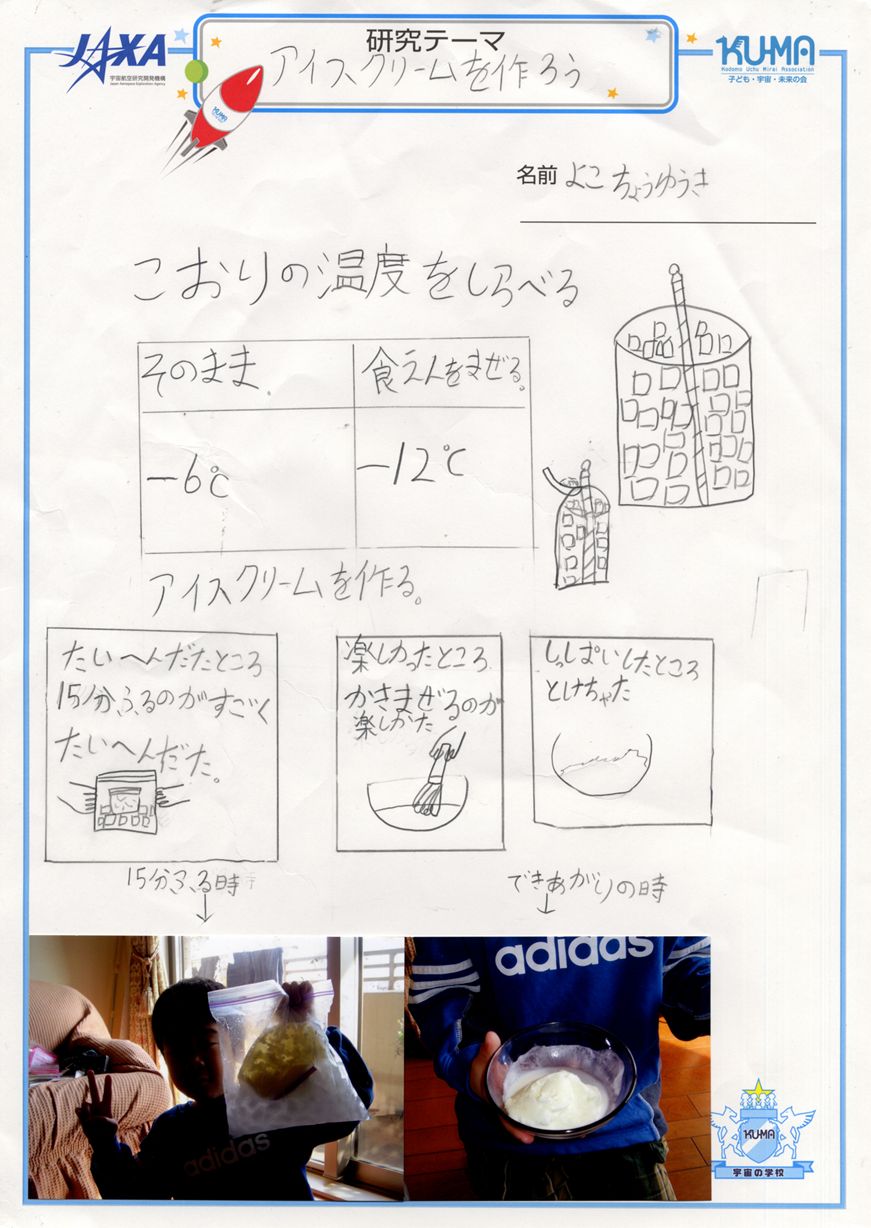 JAXA
宇宙航空研究開発機構
Japan Aerospace Exploration Agency
研究テーマ
アイスクリームを作ろう
KU-MA
Kodomo Uchu Mirai Association
子ども・宇宙・未来の会
KU-MA
名前 よこちょうゆうき
こおりの温度をしらべる
そのまま
食えんをまぜる。
-6℃
-12℃
アイスクリームを作る。
たいへんだたところ
15分ふるのがすごく
たいへんだた。
楽しかったところ
かきまぜるのが
楽しかた
しっぱいしたところ
とけちゃた
15分ふる時
できあがりの時
adidas
adidas
KU-MA
宇宙の学校